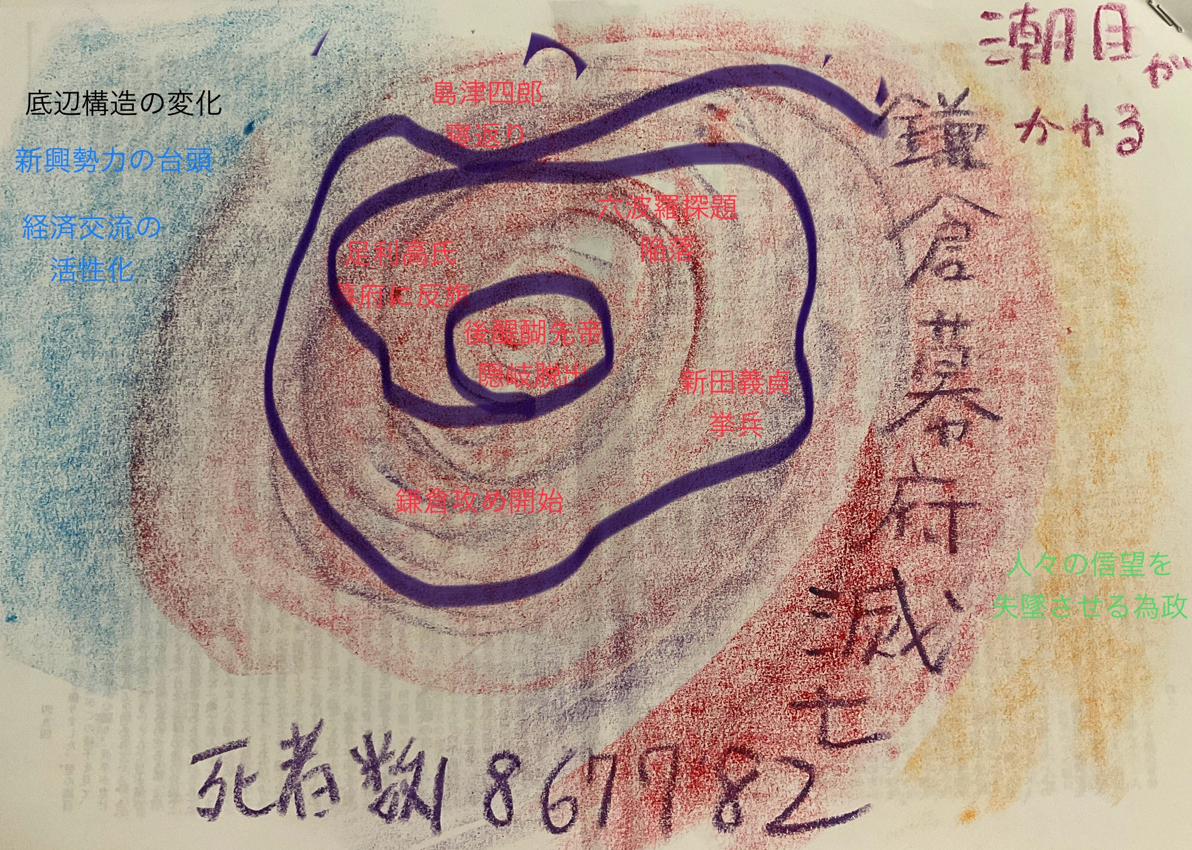 潮目が
かわる
鎌倉幕府滅亡
底辺構造の変化
新興勢力の台頭
経済交流の
活性化
島津四郎
寝返り
六波羅探題
陥落
足利高氏
幕府に反旗
後醍醐先帝
隠岐脱出
新田義貞
挙兵
鎌倉攻め開始
人々の信望を
失墜させる為政
死者数1867782